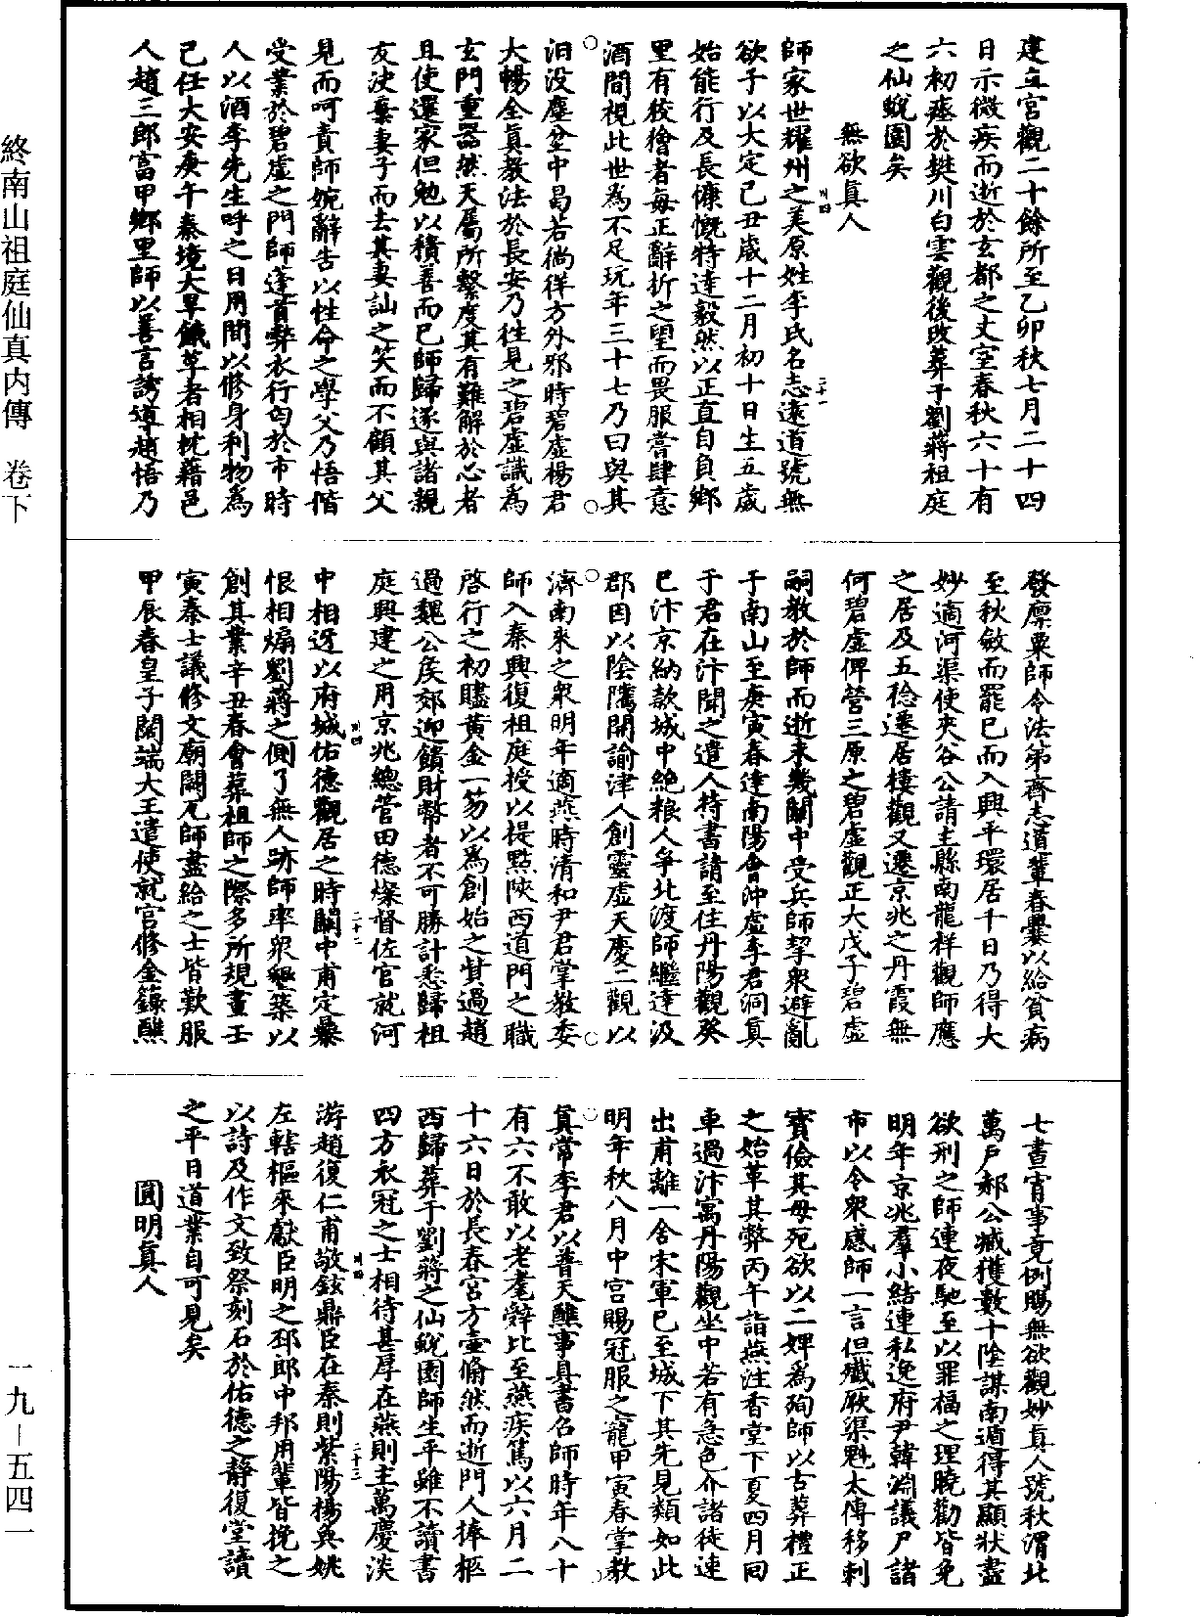 終南山祖庭仙真內傳　卷下
一九—五四一
建立宮觀二十餘所至乙卯秋七月二十四
日示微疾而逝於玄都之丈室春秋六十有
六初瘞於樊川白雲觀後改葬于劉蔣祖庭
之仙蛻園矣
無欲真人
師家世耀州之美原姓李氏名志遠道號無
欲子以大定己丑歲十二月初十日生五歲
始能行及長慷慨特達毅然以正直自負鄉
里有狡獪者每正辭折之望而畏服嘗肆意
酒間視此世為不足玩年三十七乃曰與其
汨沒塵坌中曷若徜徉方外邪時碧虛楊君
大暢全真教法於長安乃往見之碧虛識為
玄門重器然天屬所繫度其有難解於心者
且使還家但勉以積善而已師歸遂與諸親
友決棄妻子而去其妻訕之笑而不顧其父
見而呵責師婉辭告以性命之學父乃悟偕
受業於碧虛之門師蓬首弊衣行匄於市時
人以酒李先生呼之日用間以修身利物為
己任大安庚午秦境大旱餓莩者相枕藉邑
人趙三郎富甲鄉里師以善言誘導趙悟乃
發廪粟師令法弟齊志道輩舂爨以給貧病
至秋斂而罷已而入興平環居千日乃得大
妙適河渠使夾谷公請主縣南龍祥觀師應
之居及五稔遷居樓觀又遷京兆之丹霞無
何碧虛俾營三原之碧虛觀正大戊子碧虛
嗣教於師而逝未幾關中受兵師挈衆避亂
于南山至庚寅春達南陽會沖虛李君洞真
于君在汴聞之遣人持書請至住丹陽觀癸
巳汴京納款城中絶粮人爭北渡師繼達汲
郡因以陰騭開諭津人創靈虛天慶二觀以
濟南來之衆明年適燕時清和尹君掌教委
師入秦興復祖庭授以提點陝西道門之職
啓行之初贐黃金一笏以為創始之貲過趙
過魏公侯郊迎饋財幣者不可勝計悉歸祖
庭興建之用京兆總管田德燦督佐官就河
中相迓以府城佑德觀居之時關中甫定暴
恨相煽劉蔣之側了無人跡師率衆墾築以
創其業辛丑春會葬祖師之際多所規畫壬
寅秦士議修文廟闕瓦師盡給之士皆歎服
甲辰春皇子闊端大王遣使就宮修金籙醮
七晝宵事竟例賜無欲觀妙真人號秋渭北
萬戶郝公臧獲數十陰謀南遁得其顯狀盡
欲刑之師連夜馳至以罪福之理曉勸皆免
明年京兆羣小結連私逸府尹韓淵議尸諸
市以令衆感師一言但殲厥渠魁太傅移剌
寶儉其母死欲以二婢為殉師以古葬禮正
之始革其弊丙午詣燕注香堂下夏四月回
車過汴寓丹陽觀坐中若有急色介諸徒速
出甫離一舍宋軍已至城下其先見類如此
明年秋八月中宮賜冠服之寵甲寅春掌教
真常李君以普天醮事具書召師時年八十
有六不敢以老耄辭比至燕疾篤以六月二
十六日於長春宮方壺翛然而逝門人捧柩
西歸葬于劉蔣之仙蛻園師生平雖不讀書
四方衣冠之士相待甚厚在燕則主萬慶淡
游趙復仁甫敬鉉鼎臣在秦則紫陽楊奐姚
左轄樞來獻臣明之邳郎中邦用輩皆挽之
以詩及作文致祭刻石於佑德之靜復堂讀
之平日道業自可見矣
圓明真人